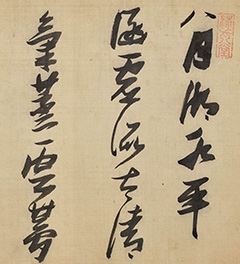 八月湖水平
涵虚混太清
氣蒸雲夢